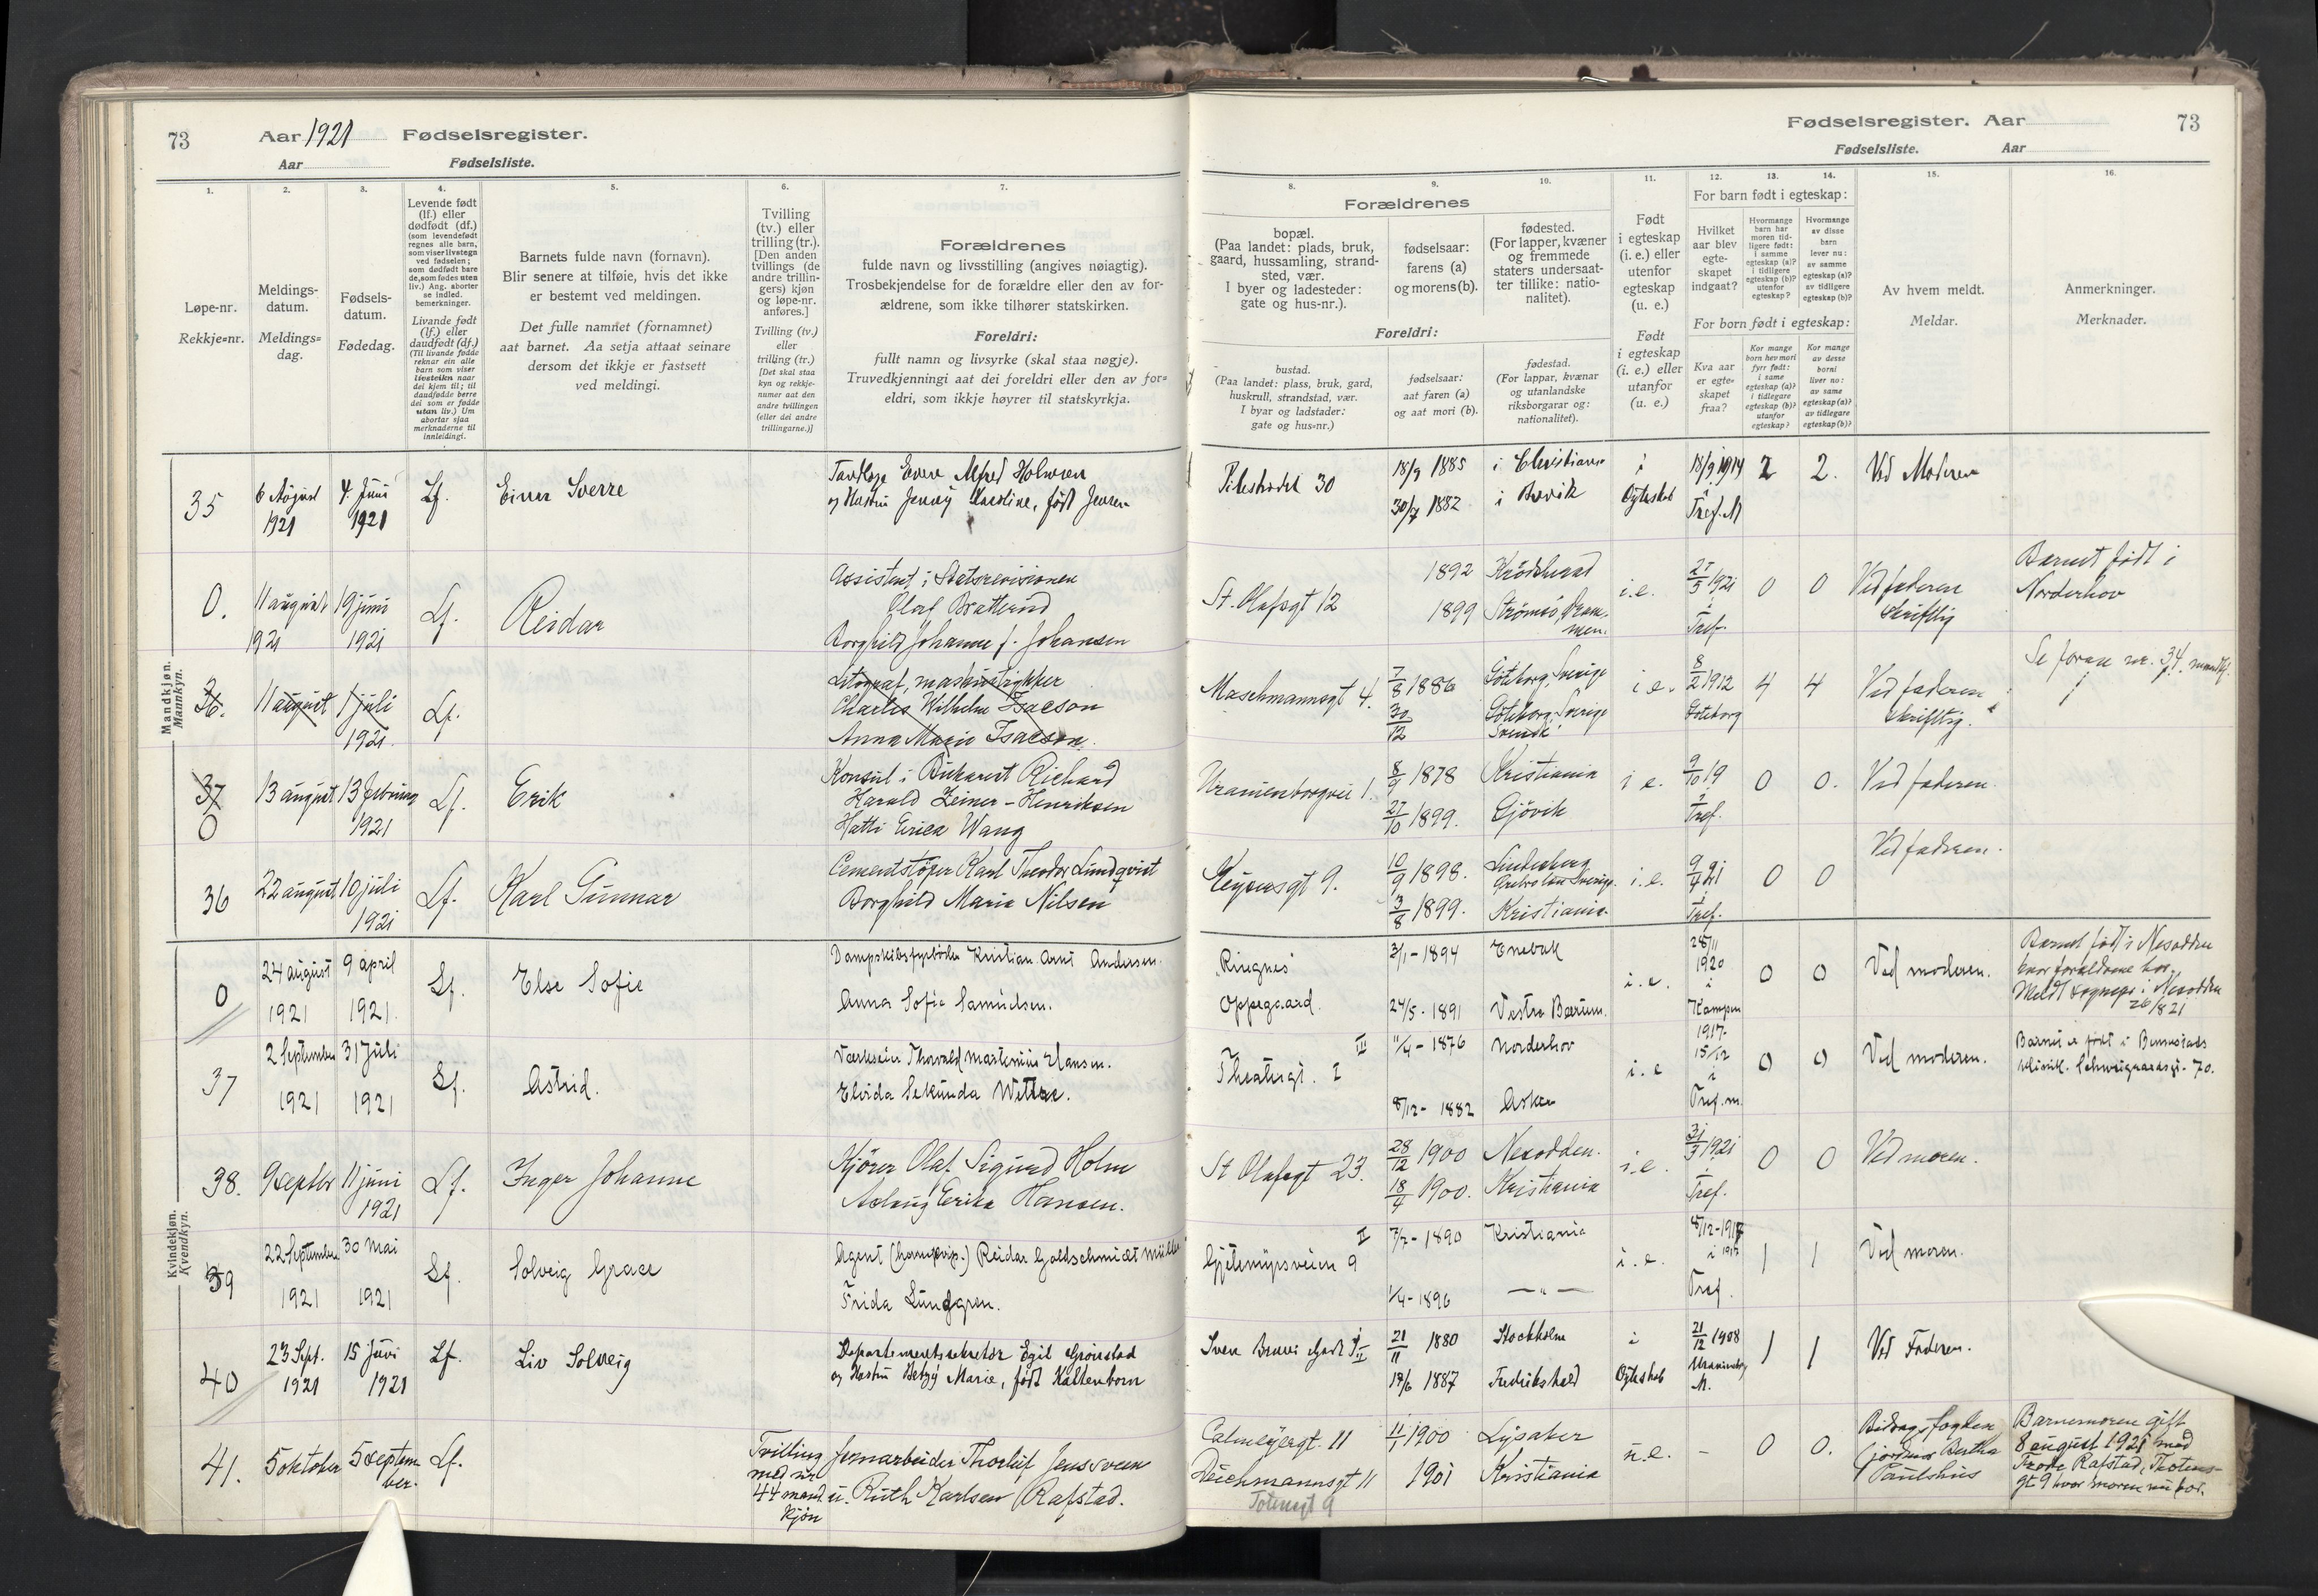 73
Aar 1921 Fødselsregister.
Aar Fødselsliste.
1.
Løpe-nr.
Rekkje=nr.
2.
Meldings-
datum.
Meldings=
dag.
3.
Fødsels-
datum.
Fødedag.
4.
Levende født
(lf.) eller
dødfødt (df.)
(som levendefødt
regnes alle barn,
som viser livstegn
ved fødselen;
som dødfødt bare
de, som fødes uten
liv.) Ang. aborter
se indled.
bemerkninger.
Livande født
(lf.) eller
daudfødt (df.)
(Til livande fødde
reknar ein alle
barn som viser
livsteikn naar
dei kjem til; til
daudfødde berre
dei som er fødde
utan liv.) Um
abortar sjaa
merknaderne til
innleidingi.
5.
Barnets fulde navn (fornavn).
Blir senere at tilføie, hvis det ikke
er bestemt ved meldingen.
Det fulle namnet (fornamnet)
aat barnet. Aa setja attaat seinare
dersom det ikkje er fastsett
ved meldingi.
6.
Tvilling
(tv.) eller
trilling (tr.).
[Den anden
tvillings (de
andre trillin-
gers) kjøn
og løpe-nr.
anføres.]
Tvilling (tv.)
eller
trilling (tr.)
[Det skal staa
kyn og rekkje-
numer aat den
andre tvillingen
(eller dei andre
trillingarne.)]
7.
Forældrenes
fulde navn og livsstilling (angives nøiagtig).
Trosbekjendelse for de forældre eller den av for-
ældrene, som ikke tilhører statskirken.
Foreldri:
fullt namn og livsyrke (skal staa nøgje).
Truvedkjenningi aat dei foreldri eller den av for=
eldri, som ikkje høyrer til statskyrkja.
Mandkjøn.
Mannkyn.
35
6 August
1921
4. Juni
1921
Lf.
Einar Sverre
og Hustru Jenny Karoline, født Jensen
0.
11 august
1921
19 juni
1921
Lf.
Reidar
Assistent i Statsrevisionen
Olaf Bratterud
Borghild Johanne f. Johansen
36.
11 august
1 juli
1921.
Lf.
Litograf, maskintrykker
Charles Wilhelm Isacson
Anna Marie Isacson.
37
0
13 august
13 februar
1921
Lf.
Erik
Konsul i Bukarest Richard
Harald Zeiner-Henriksen
Hatti Erica Wang
36
22 august
10 juli
1921
Lf.
Karl Gunnar
Cementstøper Karl Theodor Lundqvist
Borghild Marie Nilsen
Kvindekjøn.
Kvendkyn.
0
24 august
1921
9 april
1921.
Lf.
Else Sofie
Dampskibsfyrbøter Kristian Arnt Andersen.
Anna Sofie Samuelsen.
37
2 September
1921
31 Juli
1921
Lf.
Astrid.
Værkseier Thorvald Martinius Hansen.
Elvida Sekunda Wettre.
38.
9 septbr
11 juni
1921
Lf.
Inger Johanne
Kjører Olaf Sigurd Holm
Aslaug Erika Hansen.
39
22 September
1921
30 Mai
1921
Lf.
Solveig Grace
Agent Reidar Goldschmidt Müller
Frida Lundgren.
40
23 Sept.
1921
15 Juni
1921
Lf.
Liv Solveig
Departementssekretær Egil Grønstad
og Hustru Betzy Marie, født Kaltenborn
41.
5 oktober
5 septem
ber.
Lf.
Tvilling
med nr
44 mand
kjøn
Jernarbeider Thorleif Jenssveen
u. Ruth Karlsen (Rafstad.
Fødselsregister. Aar
73
Fødselsliste. Aar
Forældrenes
8.
bopæl.
(Paa landet: plads, bruk,
gaard, hussamling, strand-
sted, vær.
I byer og ladesteder:
gate og hus-nr.).
9.
fødselsaar:
farens (a)
og morens (b).
10.
fødested.
(For lapper, kvæner
og fremmede
staters undersaat-
ter tillike: natio-
nalitet).
Foreldri:
bustad.
(Paa landet: plass, bruk, gard,
huskrull, strandstad, vær.
I byar og ladstader:
gate og hus=nr.)
fødselsaar:
aat faren (a)
og aat mori (b).
fødestad.
(For lappar, kvænar
og utanlandske
riksborgarar og:
nationalitet).
11.
Født
i egteskap
(i. e.) eller
utenfor
egteskap
(u. e.)
Født
i egteskap
(i. e.) eller
utanfor
(u. e.)
12.
13.
14.
For barn født i egteskap:
Hvilket
aar blev
egte-
skapet
indgaat?
Hvormange
barn har
moren tid-
ligere født:
i samme
egteskap (a)?
i tidligere
egteskap (b)?
utenfor
egteskap?
Hvormange
av disse
barn
lever nu:
av samme
egteskap (a)?
av tidligere
egteskap (b)?
For born født i egteskap:
Kva aar
er egte=
skapet
fraa?
Kor mange
born hev mori
fyrr født:
i same
egteskap (a)?
i tidlegare
egteskap (b)?
utanfor
egteskap?
Kor mange
av desse
borni
liver no:
av same
egteskap (a)?
av tidlegare
egteskap (b)?
15.
Av hvem meldt.
Meldar.
16.
Anmerkninger.
Merknader.
Pilestrædet 30
18/9 1885
30/7 1882
i Christiania
i Brevik
i
Egteskab
18/9 1914
i
Tref. M
2
2.
Ved Moderen
St. Olafsgt 12
1892
1899
Krødsherad
Strømsø, Dram-
men.
i.e.
27/5 1921
i
Tref.
0
0
Ved faderen
skriftlig
Barnet født i
Norderhov
Maschmannsgt 4.
7/8 1886
30/12
Göteborg, Sverige
Göteborg, Sverige
Svensk
i e.
8/2 1912
Göteborg
4
4
Ved faderen
skriftlig.
Se foran nr. 34. mandkj.
Uranienborgvei 1.
8/9 1878
27/10 1899.
Kristiania
Gjøvik
i e.
9/10 19
i
Tref.
0
0.
Ved faderen.
Keysersgt 9.
10/9 1898.
3/8 1899.
Lindesberg
Örebro län Sverige.
Kristiania.
i.e.
9/4 21
i
Tref.
0
0
Ved faderen.
Ringnes
Oppegaard.
3/1-1894
24/5-1891
Enebak
Vestre Bærum.
i.e.
28/11
1920
i
Kampen
0
0
Ved moderen.
Barnet født i Nesodden
hvor forældrene bor,
Meldt sognepr. i Nesodden
26/8 21
Theatergt. 2 III
11/4-1876
8/12-1882
Norderhov
Asker
i.e
1917-
15/12
i
Tref. m.
0
0
Ved moderen.
Barnet er født i Bennestads
klinik. Schweigaardsgt-70.
St Olafsgt 23.
28/12 1900
18/4 1900.
Nesodden.
Kristiania
i.e.
31/3 1921
i
Tref.
0
0
Ved moren.
Gjetemyrsveien 9 II
7/7-1890
1/4-1896
Kristiania
— " —
i.e.
8/12-1917
i 1917
Tref.
1
1
Ved moren.
Sven Bruns Gade
21/11 1880
17/6 1887
Stockholm
Fredrikshald
i
Egteskab
21/12 1908
M.
1
1
Ved Faderen.
Calmeyergt. 11
Deichmannsgt 11
Totensgt 9
11/1 1900
1901
Lysaker
Kristiania
u.e.
-
0
0.
Bidragsfogden
Bertha
Paulshus
Barnemoren gift
8 august 1921 med
Rafstad, Totens-
gt 9 hvor moren nu bor.